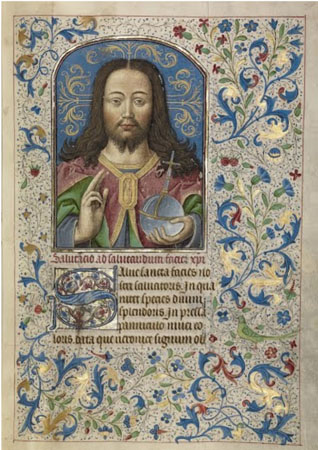 Salutacio ad salutandum faciem xpi
Salue sancta facies no
stri saluatoris. In qua
nitet species diuini
splendoris. In pressa
panniculo niuei co
loris. data que ueronice signum ob